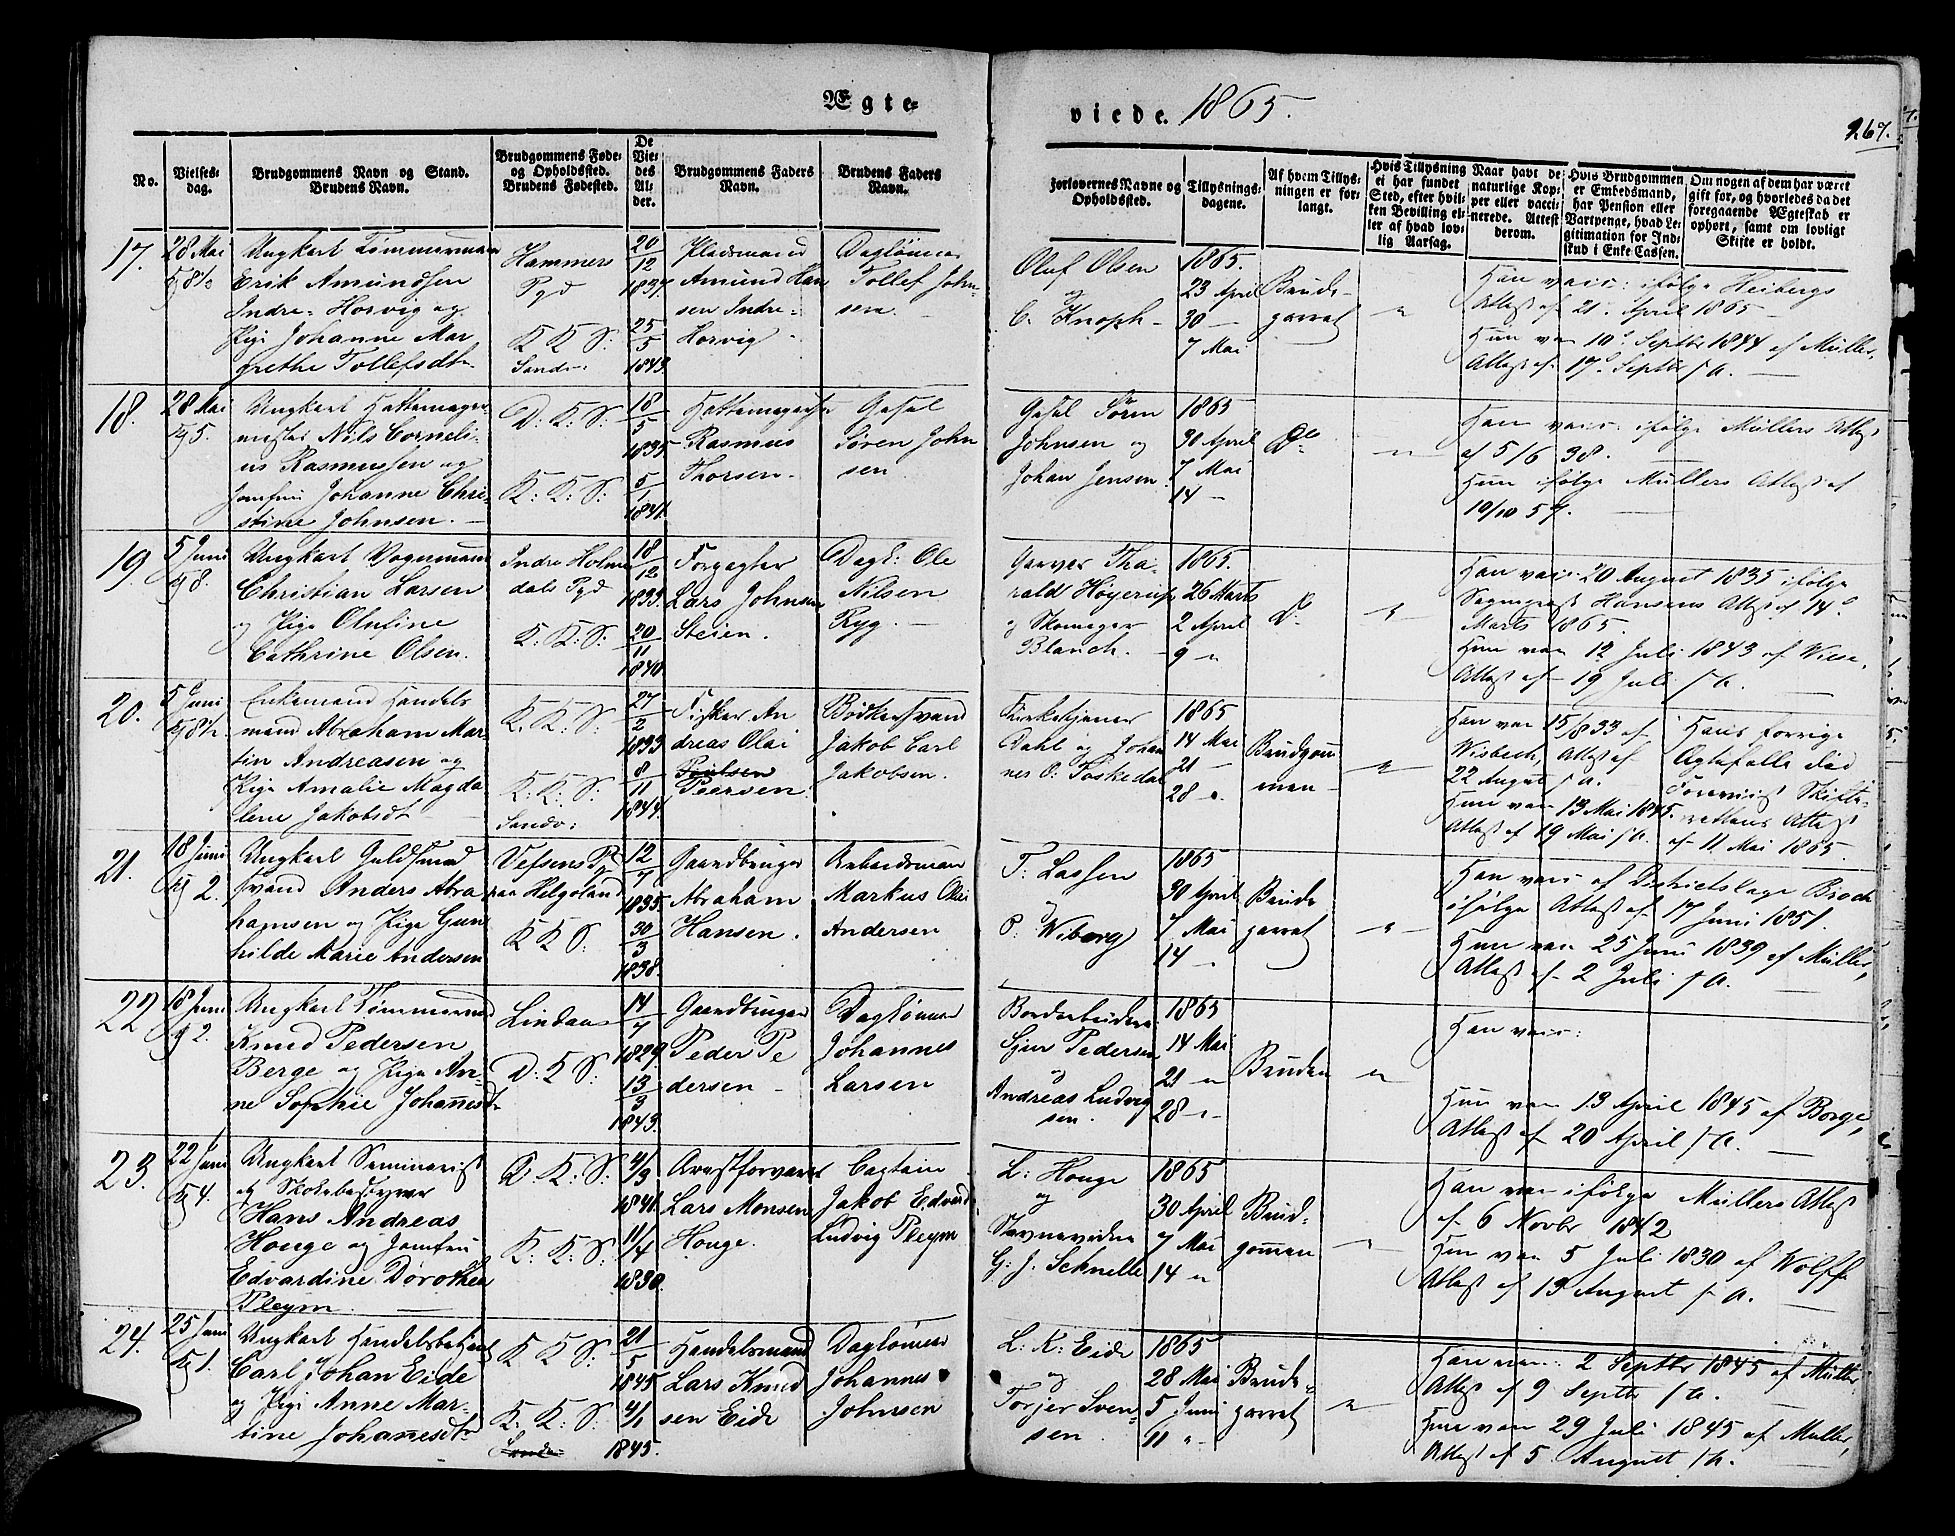 Ægte-
viede. 1865.
267.
No.
Vielses-
dag.
Brudgommens Navn og Stand.
Brudens Navn.
Brudgommens Føde-
og Opholdssted.
Brudens Fødested.
De
Vie-
des
Al-
der.
Brudgommens Faders
Navn.
Brudens Faders
Navn.
Forlovernes Navne og
Opholdssted.
Tillysnings-
dagene.
Af hvem Tillys-
ningen er for-
langt.
Hvis Tillysning
ei har fundet
Sted, efter hvil-
ken Bevilling el-
ler af hvad lov-
lig Aarsag.
Naar havt de
naturlige Kop-
per eller vacci-
nerede. Attest
derom.
Hvis Brudgommen
er Embedsmand,
har Pension eller
Vartpenge, hvad Le-
gitimation for Ind-
skud i Enke Cassen.
Om nogen af dem har været
gift før, og hvorledes da det
foregaaende Ægteskab er
ophørt, samt om lovligt
Skifte er holdt.
17.
28 Mai
Ungkarl Tømmermand
Erik Amundsen
Indre-Horvig og
Pige Johanne Mar
grethe Tollefsdtr
Hammers
Pgd
K K S:
Sandv:
20/12
1837
25/5
1843
Pladsmand
Amund Han
sen Indre-
Horvig
Dagløner
Tollef John-
sen
Oluf Olsen
og
C. Knoph
1865.
23 April
30 —
7 Mai
Brude-
parret
"
Han vacc: ifølge Heibergs
Attest af 21. April 1865
Hun vac 10. Septbr 1844 af Müller,
Attest af 17. Septbr s A.
18.
28 Mai
Kl 5.
Ungkarl Hattemager
mester Nils Corneli-
us Rasmussen og
Jomfru Johanne Chri-
stine Johnsen.
D: K: S:
K: K: S:
18/5
1835
5/1
1841
Hattemagester
Rasmus
Thorsen
Søren John
sen
Søren
Johnsen og
Johan Jensen
1865
30 April
7 Mai
14 —
Do
"
Han vacc: ifølge Müllers Attest
af 5/6 38.
Hun ifølge Müllers Attest af
10/10 57.
19.
5 Juni
Kl 8.
Ungkarl Vognmand
Christian Larsen
og Pige Olufine
Cathrine Olsen.
Indre Holme
dals Pgd
K: K: S:
18/12
1833
20/11
1840
Lars Johnsen
Steien.
Dagl: Ole
Nilsen
Ryg.
Garver Tha-
rald Høyerup
og Skomager
Blanch.
1865.
26 Marts
2 April
9 "
Do
"
Han vacc 20 August 1835 ifølge
Sogneprest Hansens Attest af 14.
Marts 1865.
Hun vac 12 Juli 1843 af Wiese,
Attest af 19 Juli s A.
20.
5 Juni
Kl 8½
Enkemand Handels
mand Abraham Mar-
tin Andreasen og
Pige Amalie Magda
lene Jakobsdt
K: K: S:
K: K: S:
Sandv:
27/2
1833
8/11
1844
Fisker An
dreas Olai
Poulsen
Peersen
Bødkersvend
Jakob Carl
Jakobsen.
Kirketjener
Dahl og Johan
nes O: Foskedal
1865
14 Mai
21 —
28 "
Brudgom-
men
"
Han vac 15/8 33 af
Wisbech, Attest af
22 August s A.
Hun vac 13 Mai 1845.
Attest af 19 Mai s A.
Hans forrige
Ægtefælle død
Forevist Skifte-
rettens Attest
af 11 Mai 1865.
21.
18 Juni
Kl 2.
Ungkarl Guldsmed
svend Anders Abra
hamsen og Pige Gun
hilde Marie Andersen
Vefsens Pgd
paa Helgeland
K K S:
12/7
1835
30/3
1838.
Gaardbruger
Abraham
Hansen.
Arbeidsmand
Markus Olai
Andersen
T. Lassen
og
P. Wiberg
1865
30 April
7 Mai
14 "
Brude
parret
"
Han vacc af Districtslæge Broch
ifølge Attest af 17 Juni 1851.
Hun vac 25 Juni 1839 af Müller,
Attest af 2 Juli s A.
22
18 Juni
Kl 2.
Ungkarl Tømmermand
Knud Pedersen
Berge og Pige An-
ne Sophie Johannesdt
Lindaas
D: K S:
14/7
1829
13/3
1843.
Gaardbruger
Peder Pe
dersen
Dagløner
Johannes
Larsen
Pedersen
og
Andreas Ludvig
sen.
1865
14 Mai
21 "
28 "
Bruden
"
Han vacc:
Hun vac 13 April 1845 af Borge,
Attest af 20 April s A.
23.
22 Juni
Kl 4.
Ungkarl Seminarist
og Skolebestyrer
Hans Andreas
Houge og Jomfru
Edvardine Dorothea
Pleym.
K. K: S:
K: K: S:
4/9
1841.
11/4
1830.
Arrestforvarer
Lars Monsen
Houge.
Captain
Jakob Edvard
Ludvig Pleym
L: Houge
og
Stevnevidne
G. J. Schnelle
1865
30 April
7 Mai
14 "
Brud-
gommen
"
Han vac ifølge Müllers Attest
af 6 Novbr 1842
Hun vac 5 Juli 1830 af Wolff
Attest af 13 August s A.
24.
25 Juni
Kl 1.
Ungkarl Handelsbetjent
Carl Johan Eide
og Pige Anne Mar-
tine Johannesdtr
K K S:
K. K: S:
Sande
21/5
1845
4/1
1845.
Handelsmand
Lars Knud
sen Eide
Dagløner
Johannes
Johnsen
L. K: Eide
og
Torjer Sven-
sen.
1865
28 Mai
5 Juni
11 "
Brude-
parret
"
Han vac: 2 Septbr 1845 af Müller
Attest af 9 Septbr s A.
Hun vac 29 Juli 1845 af Müller,
Attest af 5 August s A.